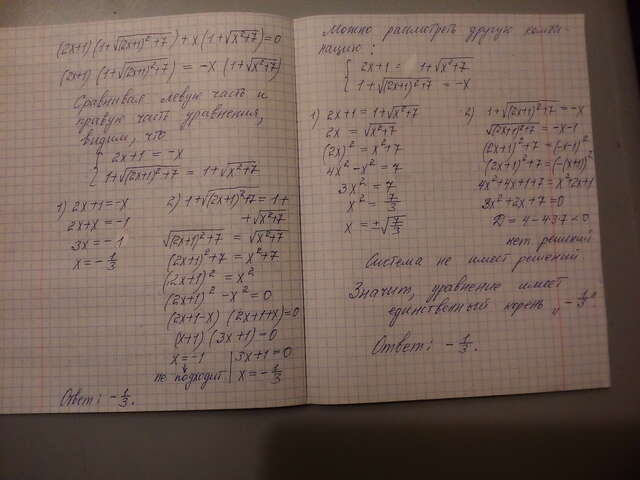 (2x+1)(1+√((2x+1)²+7)) + x(1+√(x²+7)) = 0
(2x+1)(1+√((2x+1)²+7)) = -x(1+√(x²+7))
Сравнивая левую часть и
правую часть уравнения,
видим, что
{ 2x+1 = -x
{ 1+√((2x+1)²+7) = 1+√(x²+7)
1) 2x+1 = -x
2x+x = -1
3x = -1
x = -1/3
2) 1+√((2x+1)²+7 = 1+
+√(x²+7)
√((2x+1)²+7 = √(x²+7)
(2x+1)²+7 = x²+7
(2x+1)² = x²
(2x+1)² - x² = 0
(2x+1-x)(2x+1+x)=0
(x+1)(3x+1)=0
x=-1 | 3x+1=0
не подходит | x=-1/3
Ответ: -1/3.
Можно рассмотреть другую комби-
нацию:
{ 2x+1 = 1+√(x²+7)
{ 1+√((2x+1)²+7) = -x
1) 2x+1 = 1+√(x²+7)
2x = √(x²+7)
(2x)² = x²+7
4x²-x² = 7
3x² = 7
x² = 7/3
x = ±√(7/3)
2) 1+√((2x+1)²+7 = -x
√((2x+1)²+7 = -x-1
(2x+1)²+7 = (-x-1)²
(2x+1)²+7 = (-(x+1))²
4x²+4x+1+7 = x²+2x+1
3x²+2x+7=0
D = 4-4·3·7 < 0
нет решений
Система не имеет решений
Значит, уравнение имеет
единственный корень „-1/3"
Ответ: -1/3.